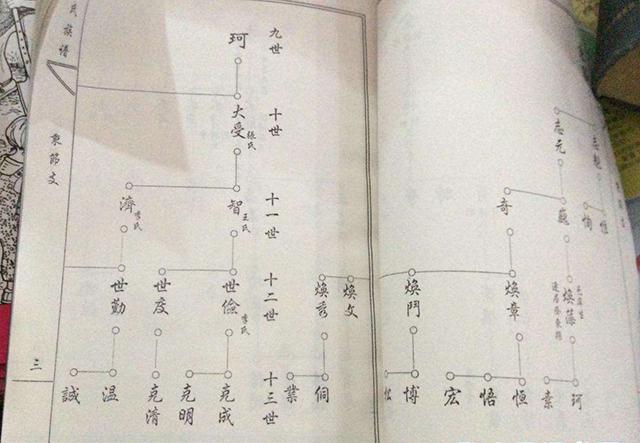 氏族谱
東節支
三
九世
珂
十世
大受
張氏
十一世
智
王氏
濟
李氏
十二世
世儉
李氏
世度
世勤
煥秀
煥文
十三世
克成
克明
克清
温
誠
業
侗
志元
奇
煥藻
煥章
煥門
珂
素
恒
悟
宏
博